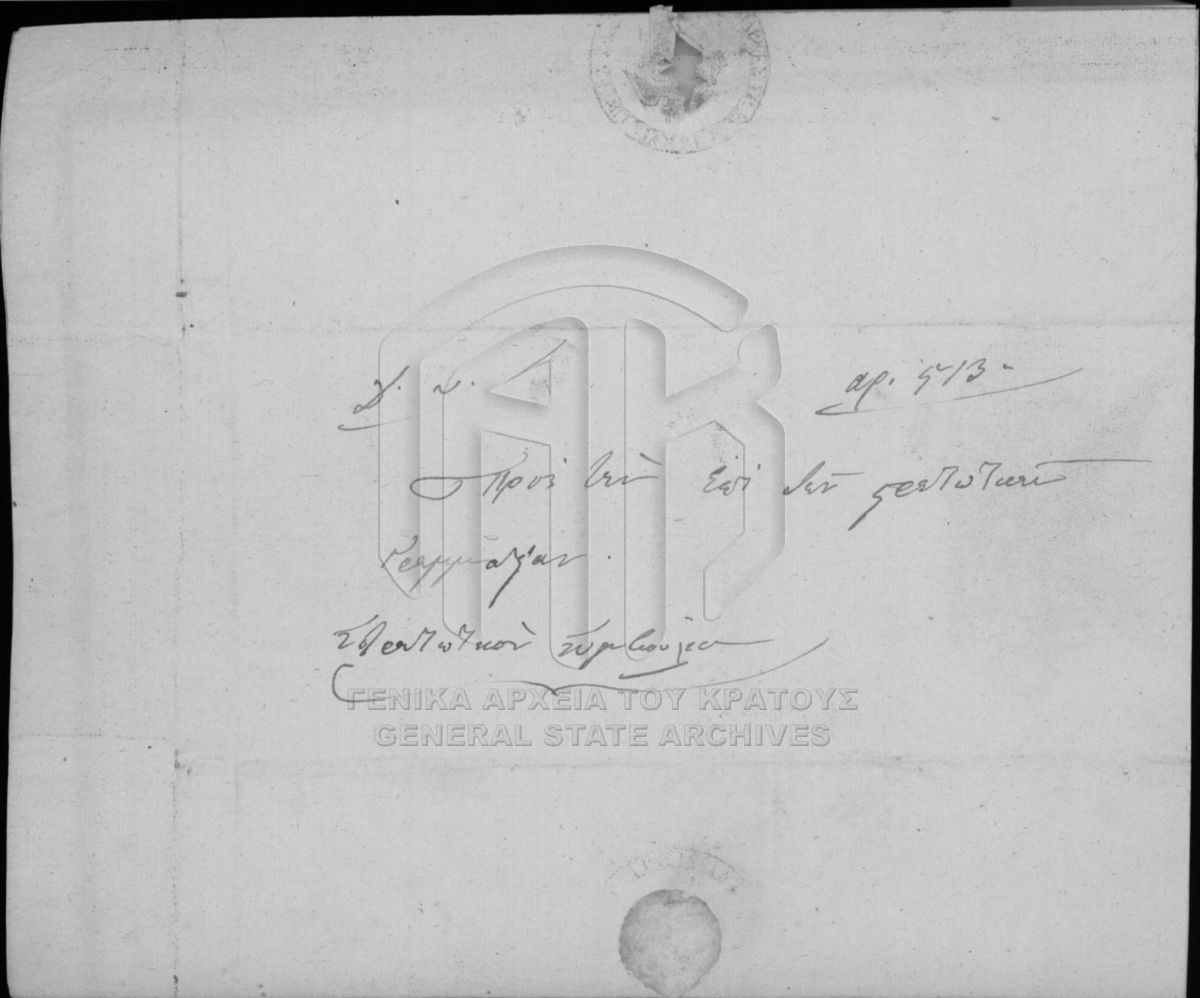 αρ. 513
Πρὸς τὴν ἐπὶ τῶν στρατιωτικῶν
Γραμματείαν.
Στρατιωτικὸν Συμβούλιον
ΓΕΝΙΚΑ ΑΡΧΕΙΑ ΤΟΥ ΚΡΑΤΟΥΣ
GENERAL STATE ARCHIVES